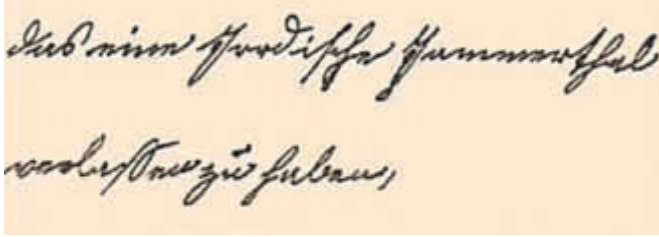 das eine Irrdische Jammerthal
verlassen zu haben,